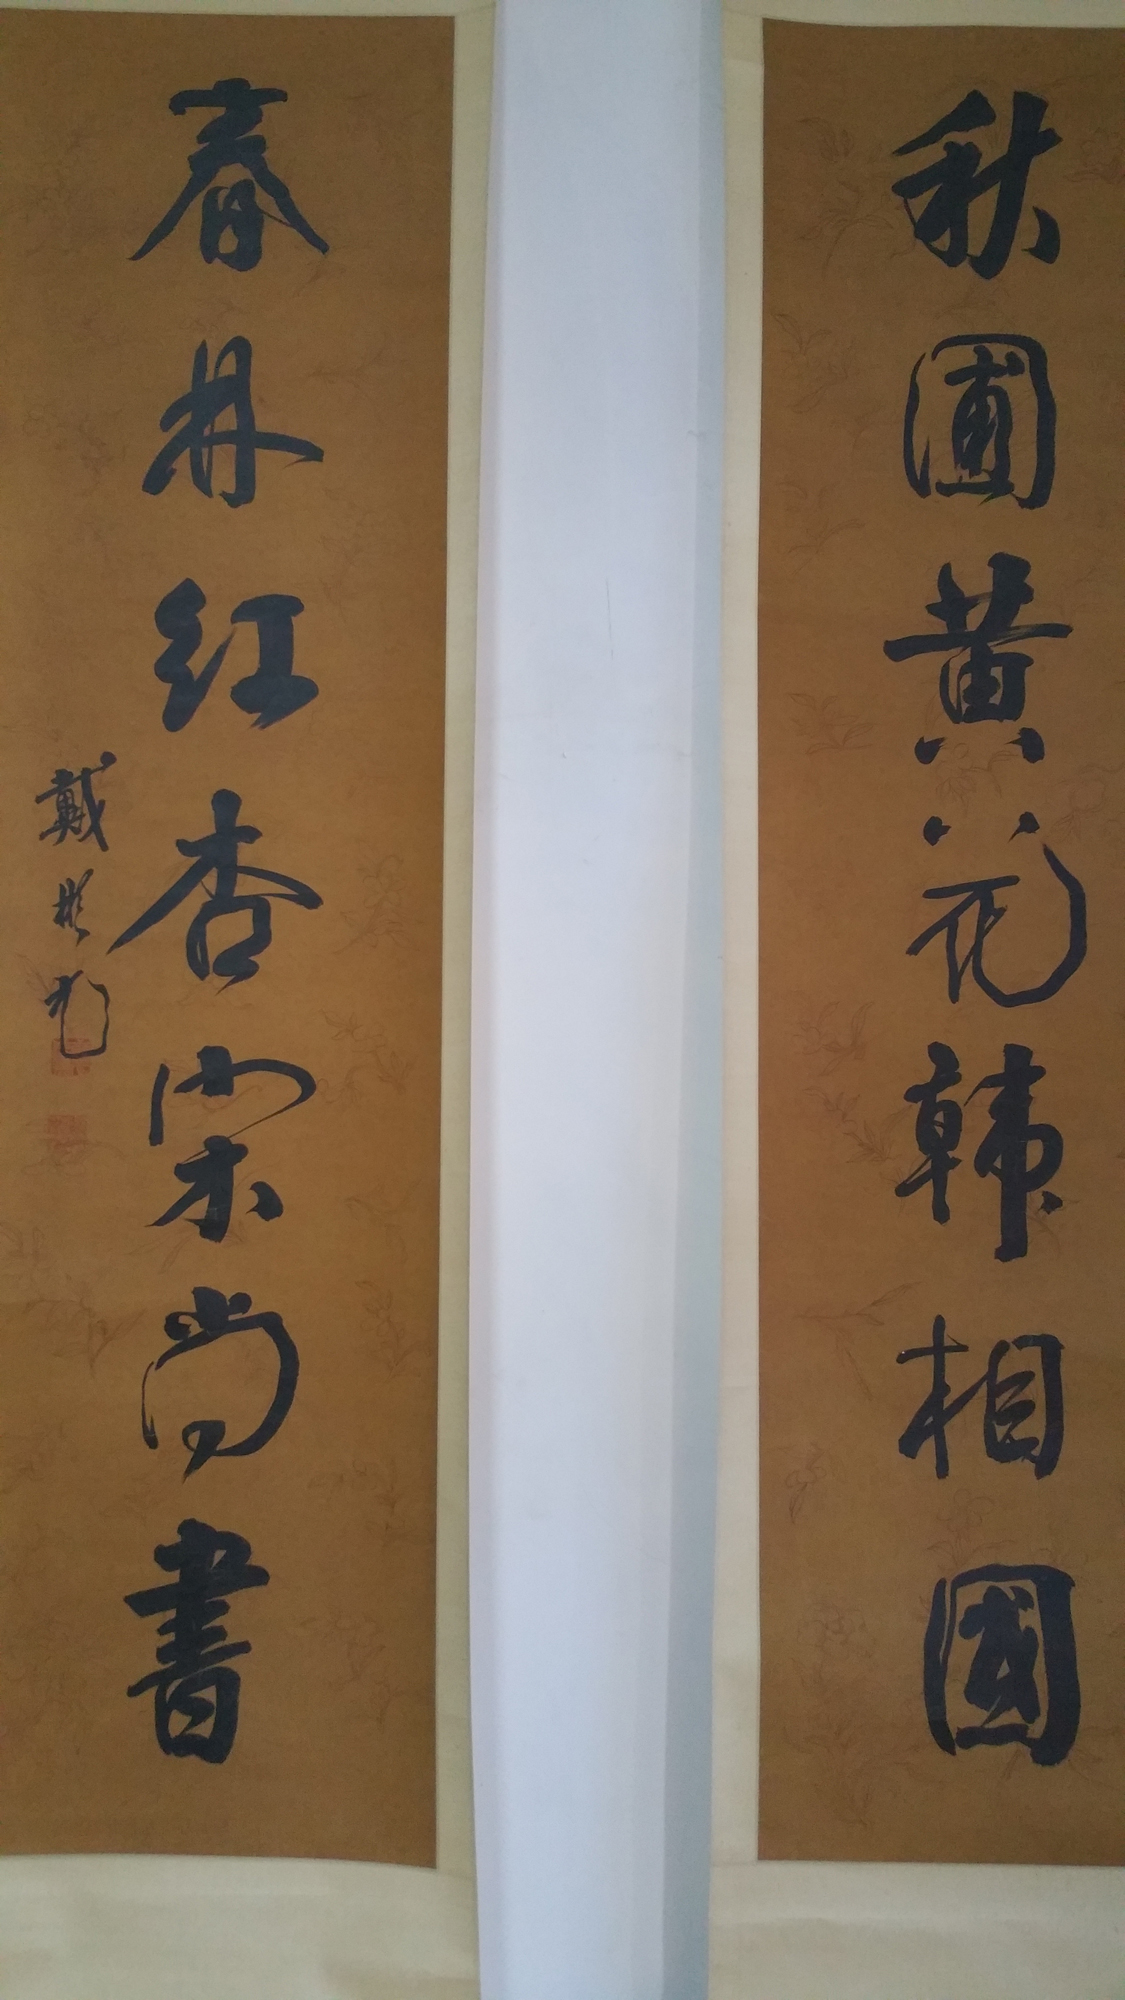 秋圃黃花韩相國
春林红杏宋尚書
戴彬元